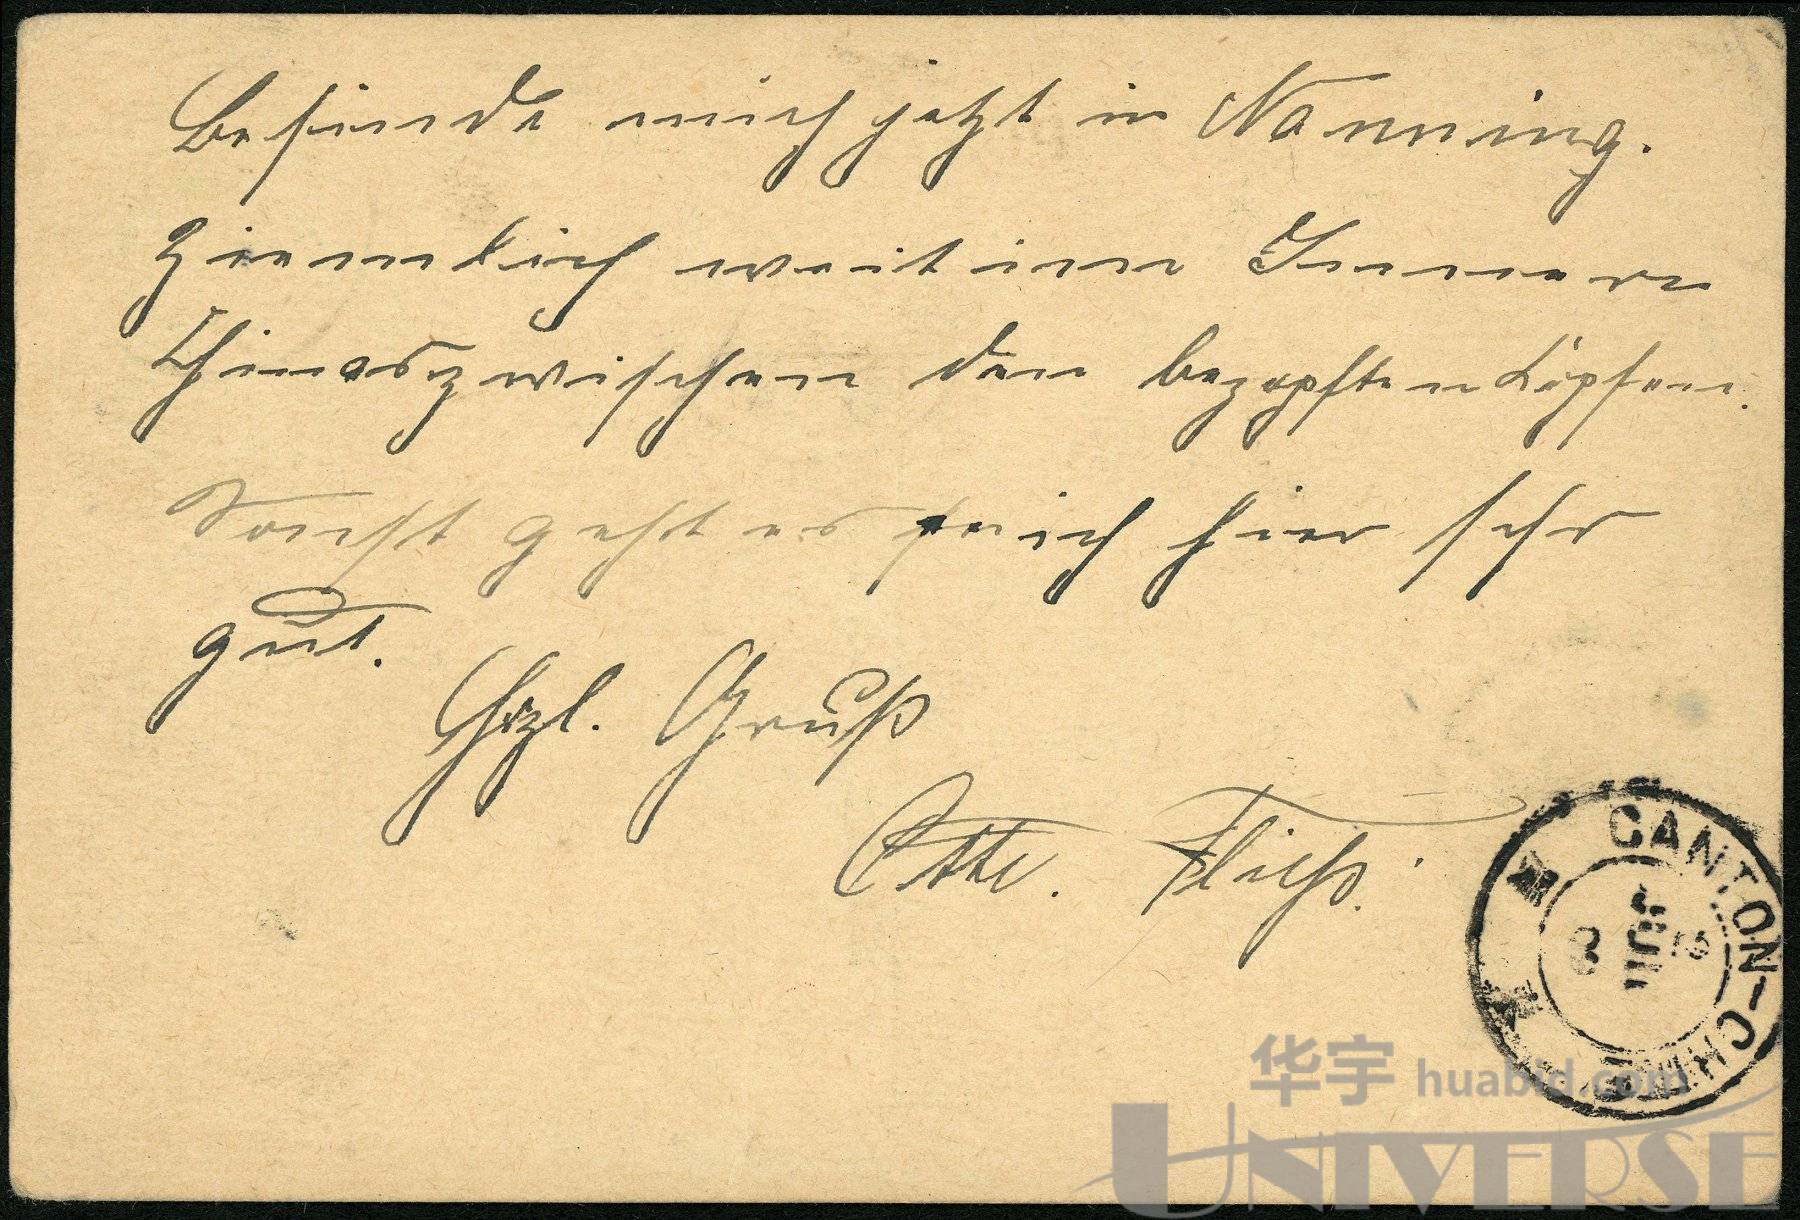 Befinde mich jetzt in Nanning.
Ziemlich weit im Innern
Chinas zwischen den bezopften Köpfen.
Sonst geht es mich hier sehr
gut.
Hrzl. Gruß
Otto Fließ.
CANTON-CHINA
3
JUL
华宇 huabid.com
UNIVERSE